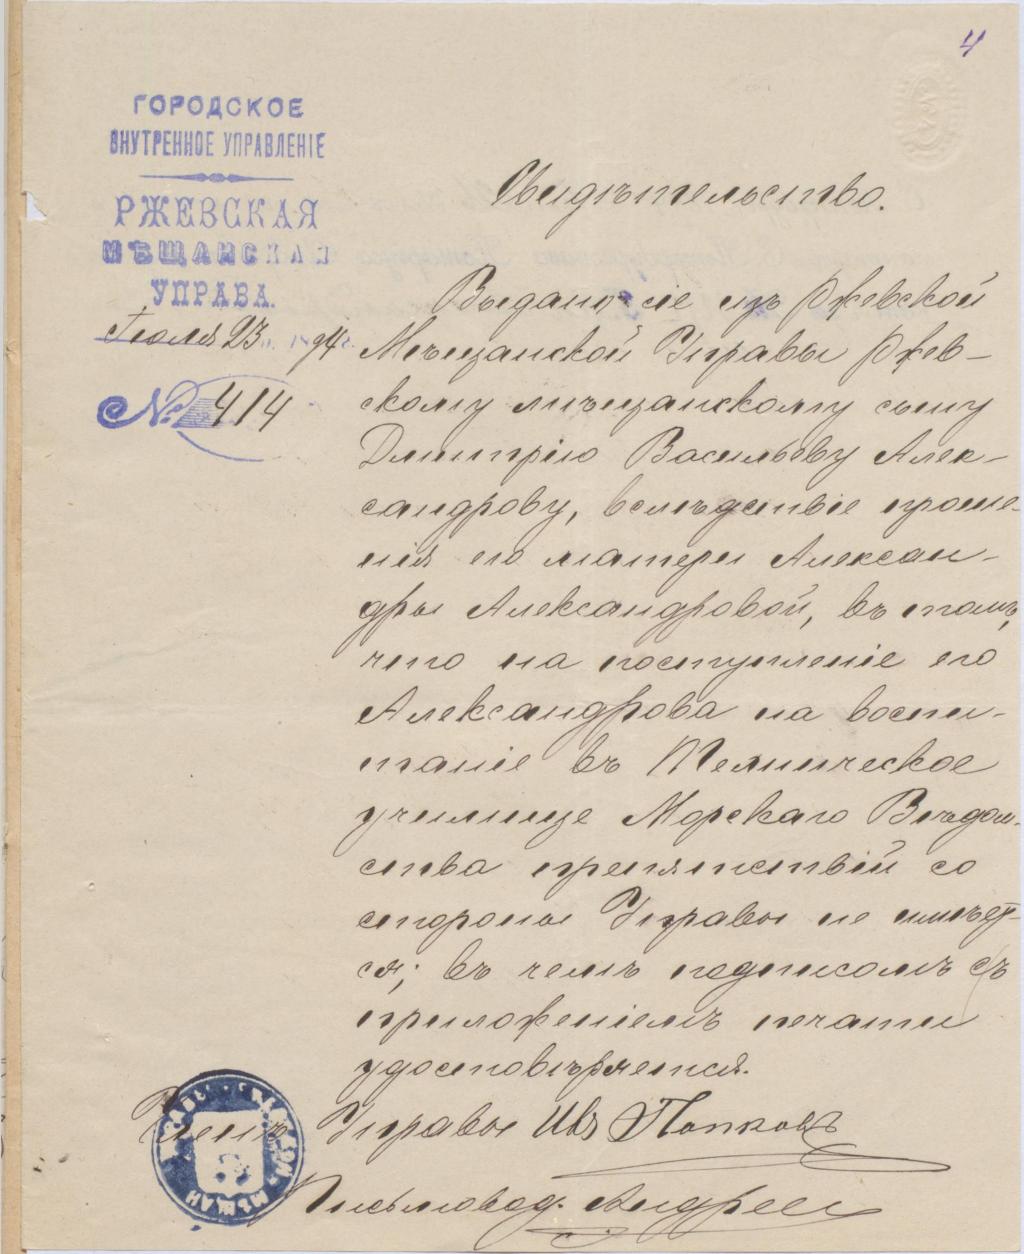 4
ГОРОДСКОЕ
ВНУТРЕННОЕ УПРАВЛЕНІЕ
РЖЕВСКАЯ
МѢЩАНСКАЯ
УПРАВА.
Іюля 23 94
№ 414
Свидѣтельство.
Выдано сіе изъ Ржевской
Мѣщанской Управы Ржев-
скому мѣщанскому сыну
Дмитрію Васильеву Алек-
сандрову, вслѣдствіе проше-
нія его матери Алексан-
дры Александровой, въ томъ,
что на поступленіе его
Александрова на воспи-
таніе въ Техническое
училище Морскаго Вѣдом-
ства препятствій со
стороны Управы не имѣет-
ся; въ чемъ подписомъ съ
приложеніемъ печати
удостовѣряется.
Членъ Управы Ив Попковъ
Письмовод. Андреев